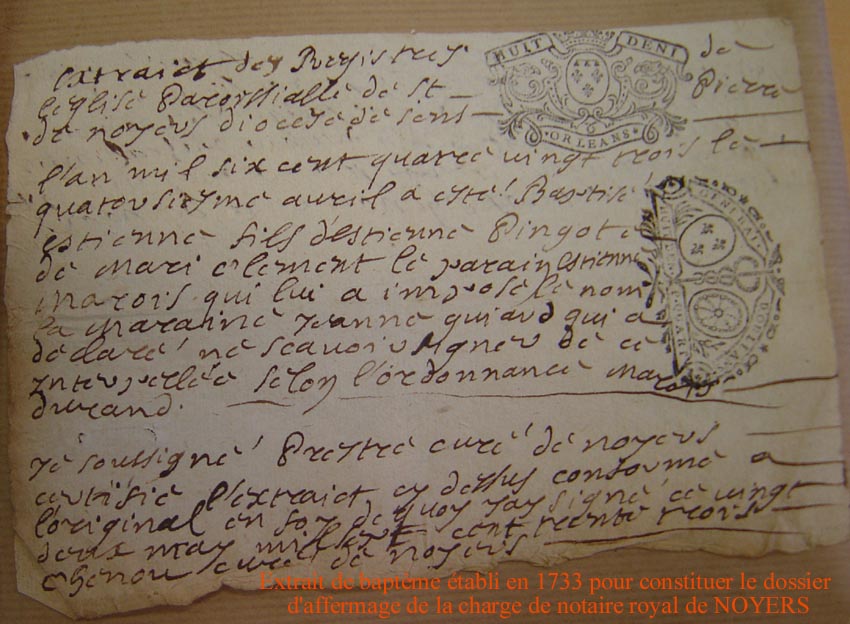 extraict des Registres de
l'eglise Paroissialle de st Pierre
de noyers diocese de sens
HUIT DENI
ORLEANS
l'an mil six cent quatre vingt trois le
quatorsiesme avril a esté Baptisé
estienne fils d'estienne Pingot e
de Mari clement le parain estienne
Marois qui lui a imposé le nom
la Maraine jeanne qui a
declaré ne scavoir signer de ce
interpellée selon l'ordonnance Marois
durand.
GENERAL
D'ORLEANS
je soussigné Prestre curé de noyers
certifie l'extraict cy dessus conforme a
l'original en foy de quoy j'ay signé ce vingt
deux may mil sept cent trente trois
chenou curé de noyers
Extrait de baptème établi en 1733 pour constituer le dossier
d'affermage de la charge de notaire royal de NOYERS